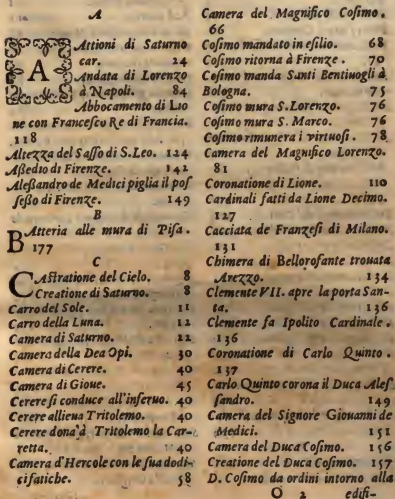 A
Attioni di Saturno
car. 24
Andata di Lorenzo
à Napoli. 84
Abbocamento di Lio
ne con Francesco Re di Francia.
118
Altezza del Sasso di S.Leo. 124
Aßedio di Firenze. 142
Aleßandro de Medici piglia il pos
seßo di Firenze. 149
B
Batteria alle mura di Pisa.
177
C
Castratione del Cielo. 8
Creatione di Saturno. 8
Carro del Sole. 11
Carro della Luna. 12
Camera di Saturno. 22
Camera della Dea Opi. 30
Camera di Cerere. 40
Camera di Gioue. 45
Cerere si conduce all'inferuo. 40
Cerere allieua Tritolemo. 40
Cerere dona'à Tritolemo la Car-
retta. 40
Camera d'Hercole con le sua dodi-
ci fatiche. 58
Camera del Magnifico Cosimo.
66
Cosimo mandato in esilio. 68
Cosimo ritorna à Firenze. 70
Cosimo manda Santi Bentiuogli à
Bologna. 75
Cosimo mura S.Lorenzo. 76
Cosimo mura S. Marco. 76
Cosimo rimunera i virtuosi. 78
Camera del Magnifico Lorenzo.
81
Coronatione di Lione. 110
Cardinali fatti da Lione Decimo.
127
Cacciata de Franzesi di Milano.
131
Chimera di Bellorofante trouata
Arezzo. 134
Clemente VII. apre la porta San-
ta. 136
Clemente fa Ipolito Cardinale.
136
Coronatione di Carlo Quinto.
137
Carlo Quinto corona il Duca Ales
sandro. 149
Camera del Signore Giouanni de
Medici. 151
Camera del Duca Cosimo. 156
Creatione del Duca Cosimo. 157
D. Cosimo da ordini intorno alla
O 2 edifi-